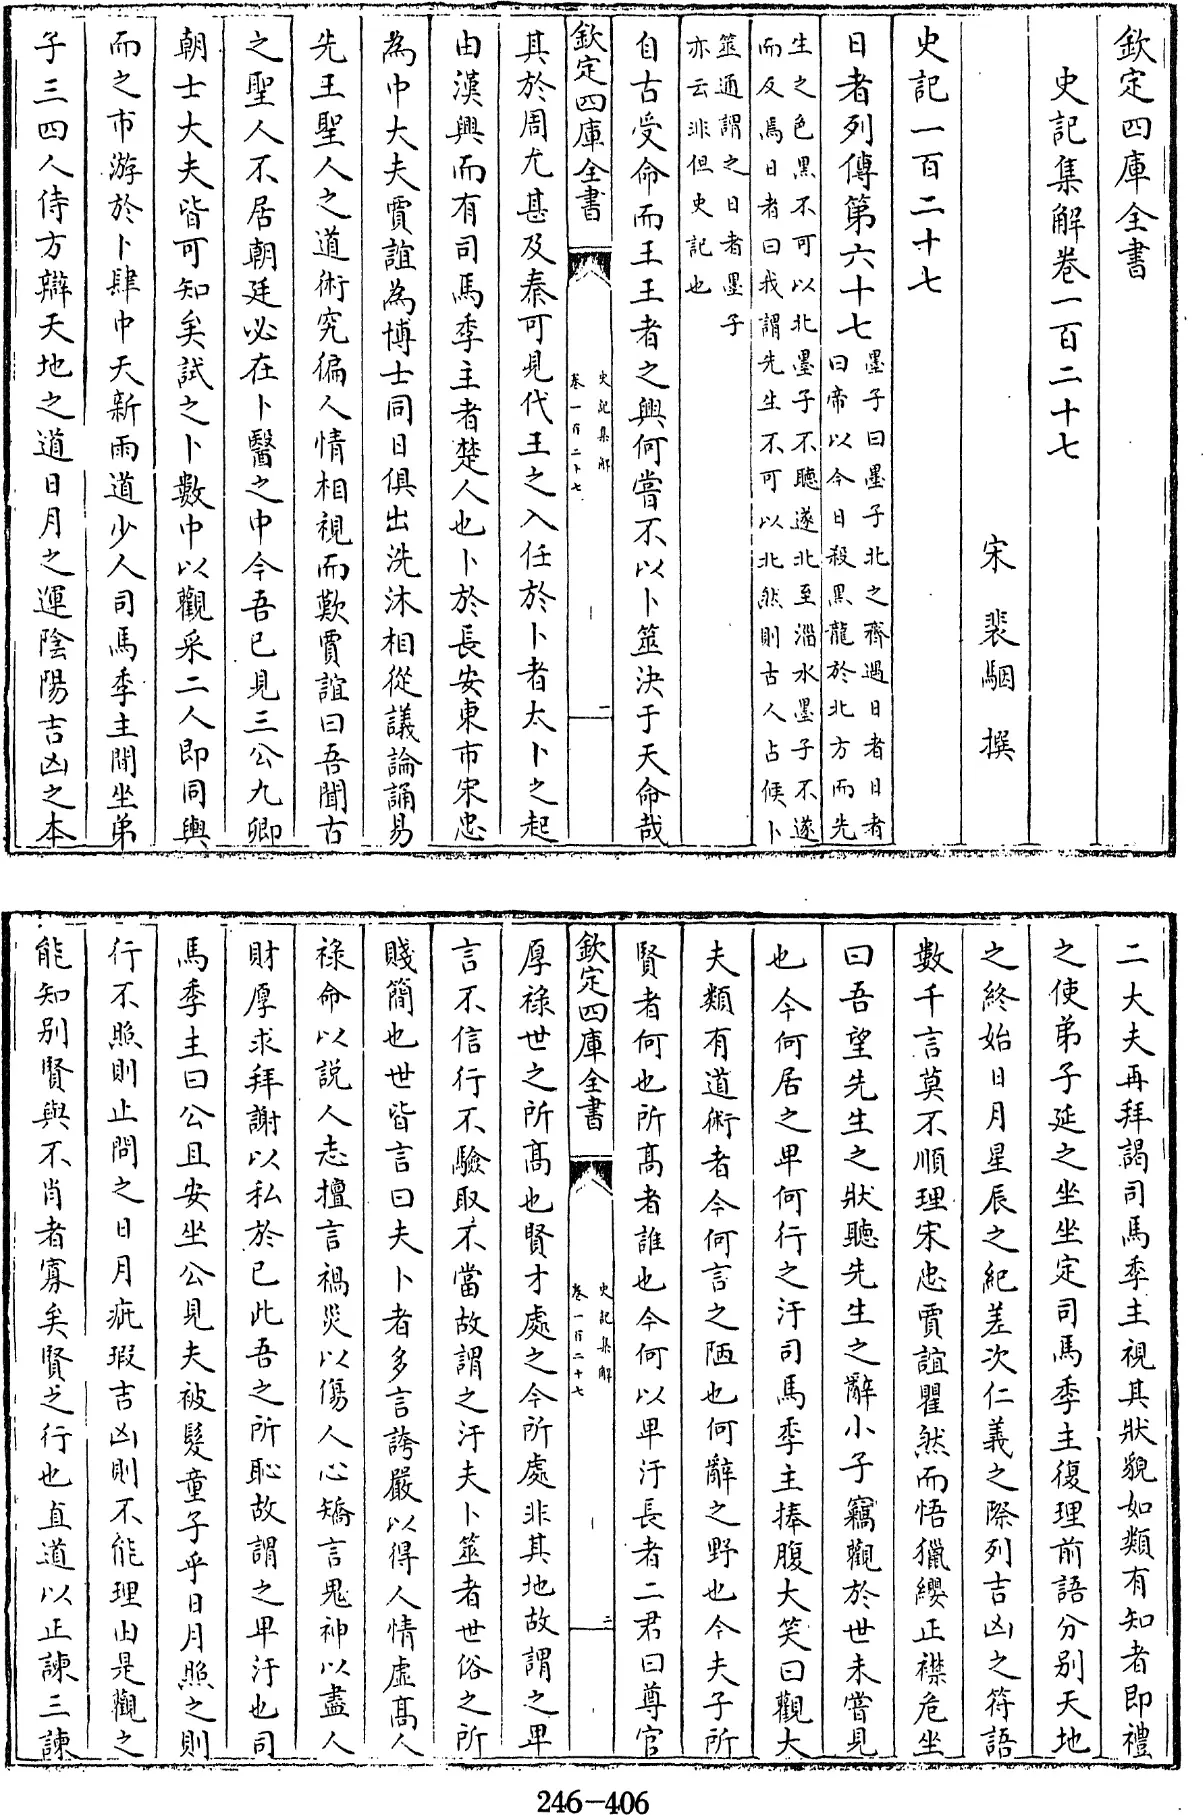 欽定四庫全書
史記集解卷一百二十七
宋 裴駰 撰
史記一百二十七
日者列傳第六十七
墨子曰墨子北之齊過日者日者
曰帝以今日殺黑龍於北方而先
生之色黑不可以北墨子不聽遂北至淄水墨子不遂
而反焉日者曰我謂先生不可以北然則古人占候卜
筮通謂之日者墨子
亦云非但史記也
自古受命而王王者之興何嘗不以卜筮決于天命哉
欽定四庫全書
史記集解
卷一百二十七
二
其於周尤甚及秦可見代王之入任於卜者太卜之起
由漢興而有司馬季主者楚人也卜於長安東市宋忠
為中大夫賈誼為博士同日俱出洗沐相從議論誦易
先王聖人之道術究徧人情相視而歎賈誼曰吾聞古
之聖人不居朝廷必在卜醫之中今吾已見三公九卿
朝士大夫皆可知矣試之卜數中以觀采二人即同輿
而之市游於卜肆中天新雨道少人司馬季主閒坐弟
子三四人侍方辯天地之道日月之運陰陽吉凶之本
二大夫再拜謁司馬季主視其狀貌如類有知者即禮
之使弟子延之坐坐定司馬季主復理前語分別天地
之終始日月星辰之紀差次仁義之際列吉凶之符語
數千言莫不順理宋忠賈誼瞿然而悟獵纓正襟危坐
曰吾望先生之狀聽先生之辭小子竊觀於世未嘗見
也今何居之卑何行之汙司馬季主捧腹大笑曰觀大
夫類有道術者今何言之陋也何辭之野也今夫子所
賢者何也所高者誰也今何以卑汙長者二君曰尊官
欽定四庫全書
史記集解
卷一百二十七
三
厚祿世之所高也賢才處之今所處非其地故謂之卑
言不信行不驗取不當故謂之汙夫卜筮者世俗之所
賤簡也世皆言曰夫卜者多言誇嚴以得人情虛高人
祿命以說人志擅言禍災以傷人心矯言鬼神以盡人
財厚求拜謝以私於己此吾之所恥故謂之卑汙也司
馬季主曰公且安坐公見夫被髮童子乎日月照之則
行不照則止問之日月疵瑕吉凶則不能理由是觀之
能知別賢與不肖者寡矣賢之行也直道以正諫三諫
246-406